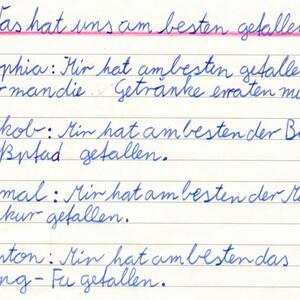 Was hat uns am besten gefallen
phia: Mir hat am besten gefalle
rmandie Getränke erraten mu
kob: Mir hat am besten der Ba
ßpfad gefallen.
mal: Mir hat am besten der M
kur gefallen.
nton: Mir hat am besten das
ng-Fu gefallen.